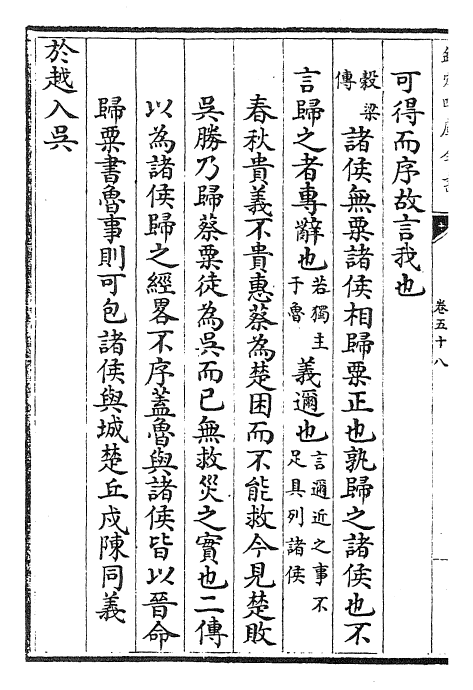 欽定四庫全書
卷五十八
可得而序故言我也
穀梁傳諸侯無粟諸侯相歸粟正也孰歸之諸侯也不
言歸之者專辭也若獨主于魯義邇也言邇近之事不足具列諸侯
春秋貴義不貴惠蔡為楚困而不能救今見楚敗
吳勝乃歸蔡粟徒為吳而已無救災之實也二傳
以為諸侯歸之經畧不序蓋魯與諸侯皆以晉命
歸粟書魯事則可包諸侯與城楚丘戍陳同義
於越入吳